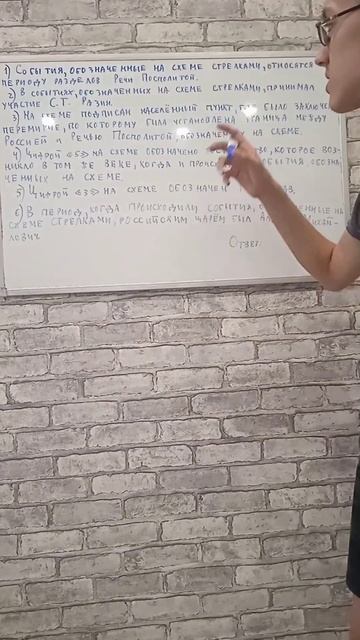 1) События, обозначенные на схеме стрелками, относятся к
периоду разделов Речи Посполитой.
2) В событиях, обозначенных на схеме стрелками, принимал
участие С.Т. Разин.
3) На схеме подписан населённый пункт, где было заключено
перемирие, по которому была установлена граница между
Россией и Речью Посполитой, обозначен на схеме.
4) Цифрой «5» на схеме обозначено которое воз-
никло в том же веке, когда и события обозна-
ченных на схеме.
5) Цифрой «3» на схеме обозначен
6) В период, когда происходили события, на
схеме стрелками, российским царём был Михай-
лович
Ответ: